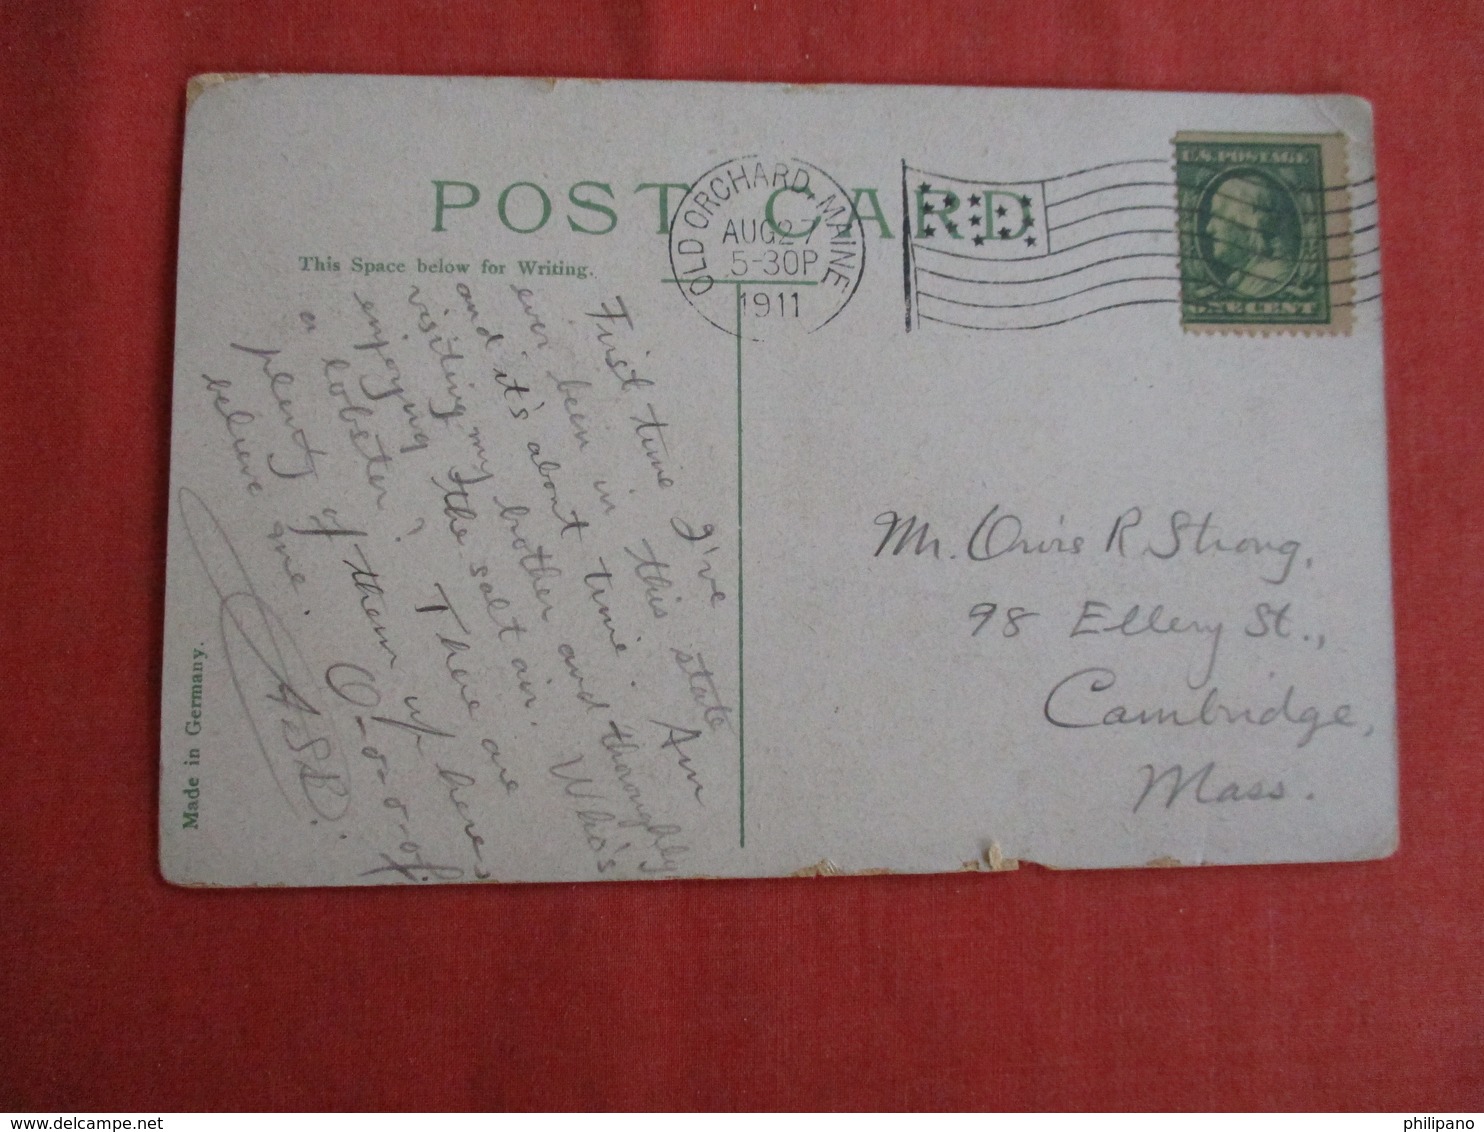 POST CARD
This Space below for Writing.
OLD ORCHARD, MAINE
AUG 27
5-30P
1911
U.S. POSTAGE
ONE CENT
First time I've
ever been in this state
and it's about time. Am
visiting my brother and thoroughly
enjoying the salt air. Who's
a lobster? There are
plenty of them up here
believe me. O-o-o-of.
Mr. Orvis R. Strong,
98 Ellery St.,
Cambridge,
Mass.
Made in Germany.
delcampe.net
philipano